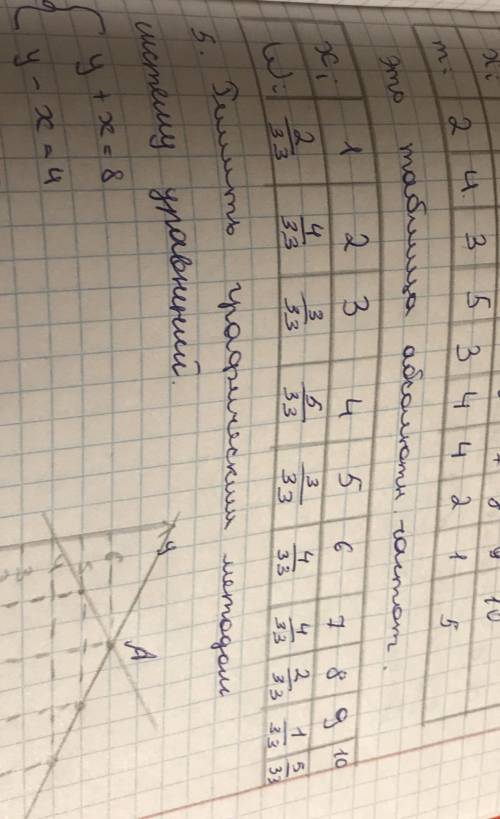 xi
mi 2 4 3 5 3 4 4 2 1 5
это таблица абсолютн. частот.
xi 1 2 3 4 5 6 7 8 9 10
Wi 2/33 4/33 3/33 5/33 3/33 4/33 4/33 2/33 1/33 5/33
5. Решить графическим методом
систему уравнений.
{ y + x = 8
y - x = 4
y
A
6
5
4
3